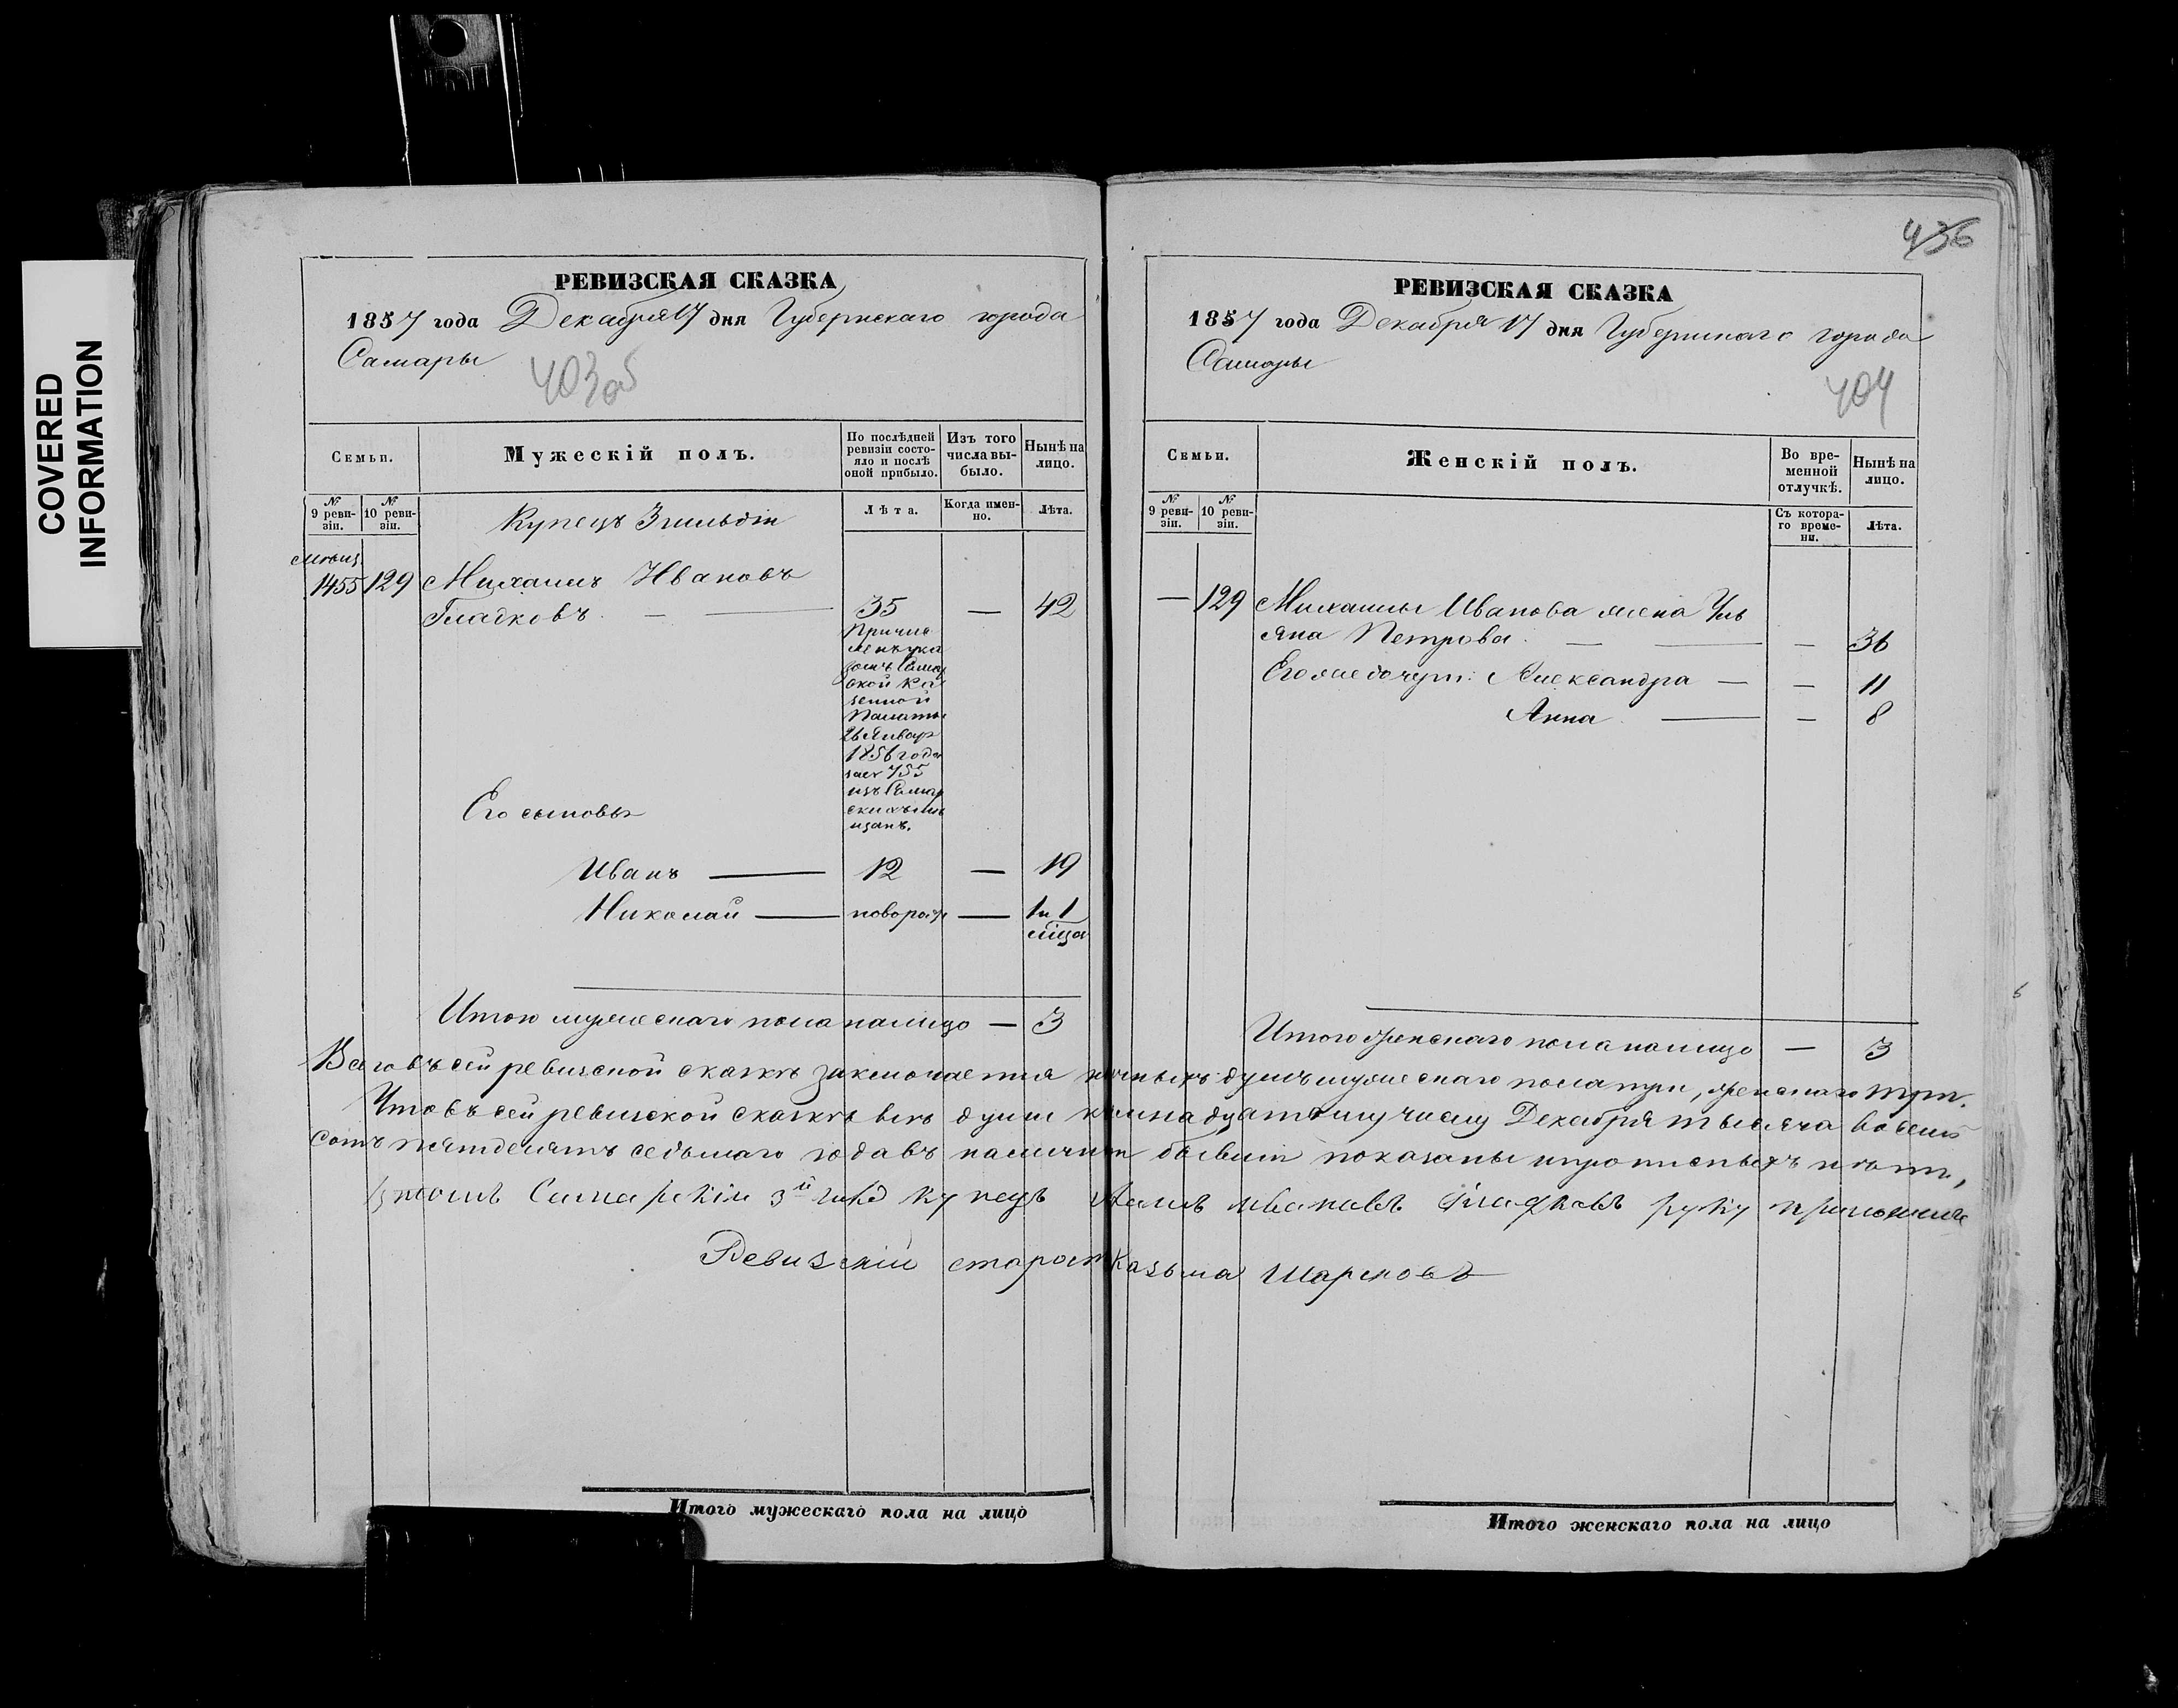 COVERED
INFORMATION
РЕВИЗСКАЯ СКАЗКА
1857 года Декабря 17 дня Губернскаго города
Самары
403об
Семьи.
Мужескій полъ.
По послѣдней
ревизіи состо-
яло и послѣ
оной прибыло.
Изъ того
числа вы-
было.
Нынѣ на
лицо.
№
9 реви-
зіи.
№
10 реви-
зіи.
Лѣта.
Когда имен-
но.
Лѣта.
Купецъ 3 гильдіи
мѣщ
1455 129 Михаилъ Ивановъ
Гладковъ — — 35 — 42
Причис
ленъ ука
зомъ Самар
ской Ка
зенной
Палаты
26 Январ
1856 года
за № 755
изъ Самар
скихъ мѣ
щанъ.
Его сыновья
Иванъ — 12 — 19
Николай — новорож — 1 и 1
мѣца
Итого мужескаго пола на лицо — 3
436
РЕВИЗСКАЯ СКАЗКА
1857 года Декабря 17 дня Губернскаго города
Самары
404
Семьи.
Женскій полъ.
Во вре-
менной
отлучкѣ.
Нынѣ на
лицо.
№
9 реви-
зіи.
№
10 реви-
зіи.
Съ котора-
го време-
ни.
Лѣта.
— 129 Михаилы Иванова жена Уль
яна Петрова — — — 36
Его же дочери: Александра — — 11
Анна — — 8
Итого женскаго пола на лицо — 3
Всего въ сей ревизской сказкѣ заключается наличныхъ душъ мужескаго пола три, женскаго три.
Что въ сей ревизской сказкѣ всѣ души къ семнадцатому числу Декабря тысяча восемь
сотъ пятьдесятъ седьмаго года въ наличности бывшія показаны и прописныхъ нѣтъ,
въ томъ Самарскій 3й гилд купецъ Ивановъ Гладковъ руку приложилъ
Ревизскій староста Казьма Шарпковъ
Итого мужескаго пола на лицо
Итого женскаго пола на лицо